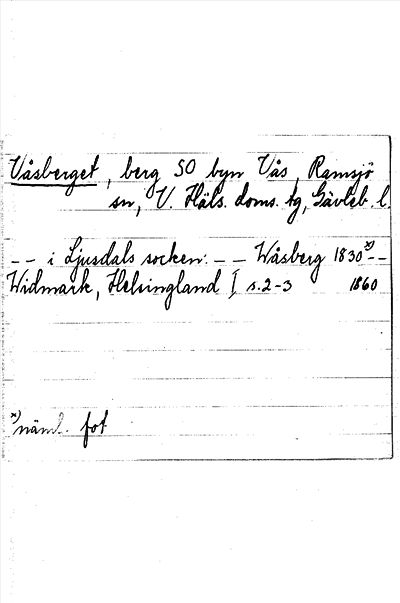 Våsberget, berg SO byn Vås, Ramsjö
sn, V. Häls. doms. tg, Gävleb. l.
-- i Ljusdals socken: -- Wåsberg 1830 x) --
Widmark, Helsingland I s. 2-3 1860
x) näml. fot